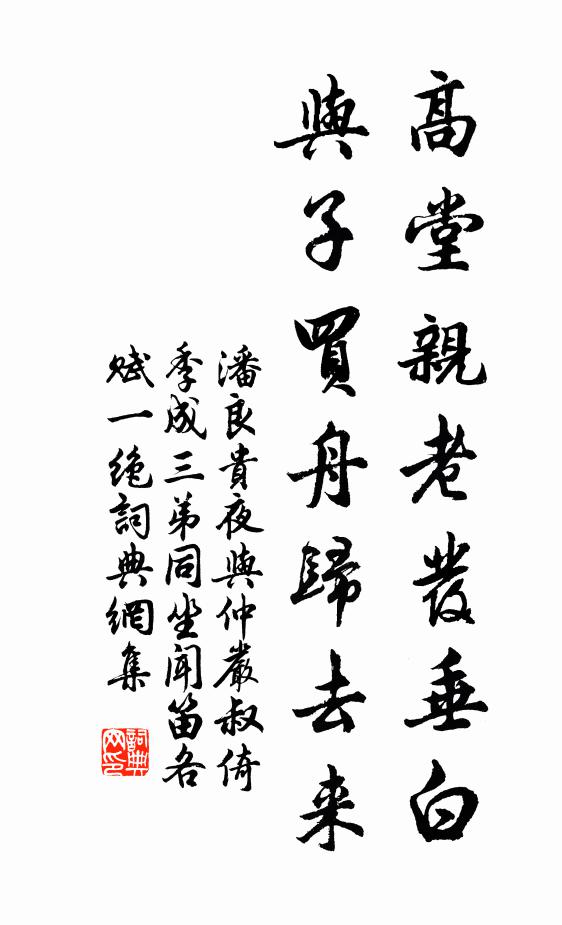 高堂親老發垂白
與子買舟歸去来
潘良貴夜與仲嚴叔倚
季成三弟同坐聞笛各
賦一绝詞典網集
詞典
网印